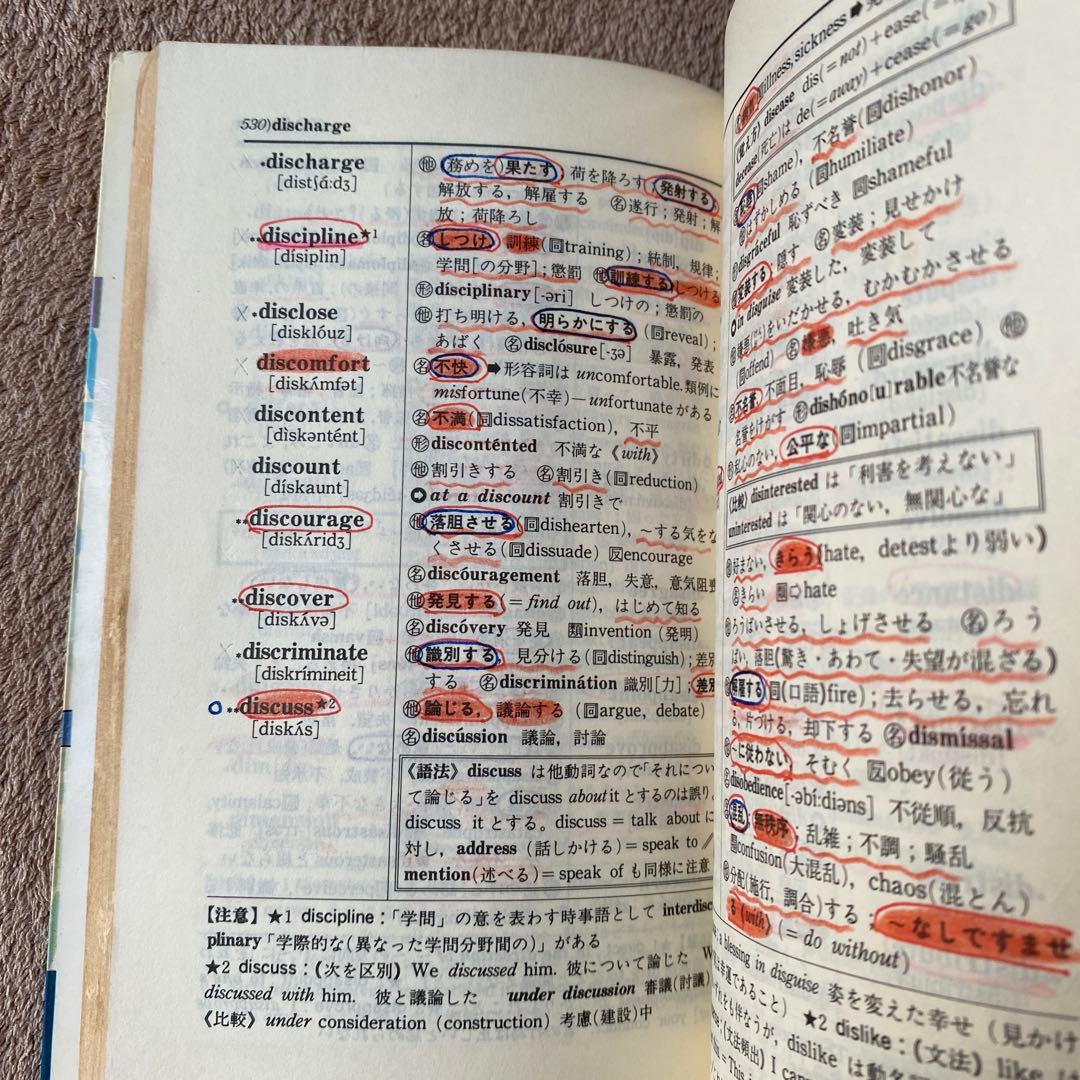 530)discharge
•discharge
㊀他 務めを)果たす, 荷を降ろす, 発射する,
[distʃáːdʒ]
解放する, 解雇する 名遂行;発射;解
放;荷降ろし
••discipline★1
名しつけ, 訓練(同training);統制, 規律;
[dísiplin]
学問[の分野];懲罰 他訓練する, しつける
形dísciplinary[-əri] しつけの;懲罰の
•disclose
他打ち明ける, 明らかにする(同reveal);
[disklóuz]
あばく 名disclósure[-ʒə] 暴露, 発表
discomfort
名不快 ➡形容詞は uncomfortable.類例に
[diskʌ́mfət]
misfortune(不幸)—unfortunate がある
discontent
名不満(同dissatisfaction), 不平
[dìskəntént]
形discontènted 不満な《with》
discount
他割引きする 名割引き(同reduction)
[dískaunt]
at a discount 割引きで
••discourage
他落胆させる(同dishearten), ~する気をな
[diskʌ́ridʒ]
くさせる(同dissuade) 反encourage
名discóuragement 落胆, 失意, 意気阻喪
••discover
他発見する(=find out), はじめて知る
[diskʌ́və]
名discóvery 発見 類invention (発明)
•discriminate
他識別する, 見分ける(同distinguish);差別
[diskrímineit]
する 名discriminátion 識別[力];差別
••discuss★2
他論じる, 議論する (同argue, debate)
[diskʌ́s]
名discússion 議論, 討論
《語法》discuss は他動詞なので「それについ
て論じる」を discuss about it とするのは誤り。
discuss it とする。discuss = talk about に
対し, address (話しかける)=speak to //
mention(述べる)=speak of も同様に注意
【注意】★1 discipline:「学問」の意を表わす時事語として interdisc
plinary「学際的な(異なった学問分野間の)」がある
★2 discuss:(次を区別) We discussed him. 彼について論じた W
discussed with him. 彼と議論した under discussion 審議(討議)
《比較》under consideration (construction) 考慮(建設)中
illness, sickness ➡
(覚え方) disease dis(=not)+ease(=
decease(死亡)は de(=away)+cease(=go)
同shame), 不名誉(同dishonor)
はずかしめる (同humiliate)
disgráceful 恥ずべき 同shameful
変装する;隠す 名変装;見せかけ
in disguise 変装した, 変装して
をいだかせる, むかむかさせる
同offend) 名嫌悪, 吐き気
不名誉, 不面目, 恥辱 (同disgrace) 他
名誉をけがす 形dishóno[u]rable不名誉な
私心のない, 公平な(同impartial)
《比較》disinterested は「利害を考えない」
uninterested は「関心のない, 無関心な」
好まない, きらう(hate, detestより弱い)
名きらい ⇨hate
ろうばいさせる, しょげさせる 名ろう
ばい, 落胆(驚き・あわて・失望が混ざる)
解雇する(同(口語)fire);去らせる, 忘れ
る, 片づける, 却下する 名dismíssal
~に従わない, そむく 反obey(従う)
disobedience[-əbíːdiəns] 不従順, 反抗
混乱, 無秩序, 乱雑;不調;騒乱
confusion(大混乱), chaos(混とん)
分配(施行, 調合)する;~なしですませ
る《with》(=do without)
a blessing in disguise 姿を変えた幸せ (見かけ
であること) ★2 dislike:(文法) like
をも伴なうが, dislike は動名
(文法頻出) I